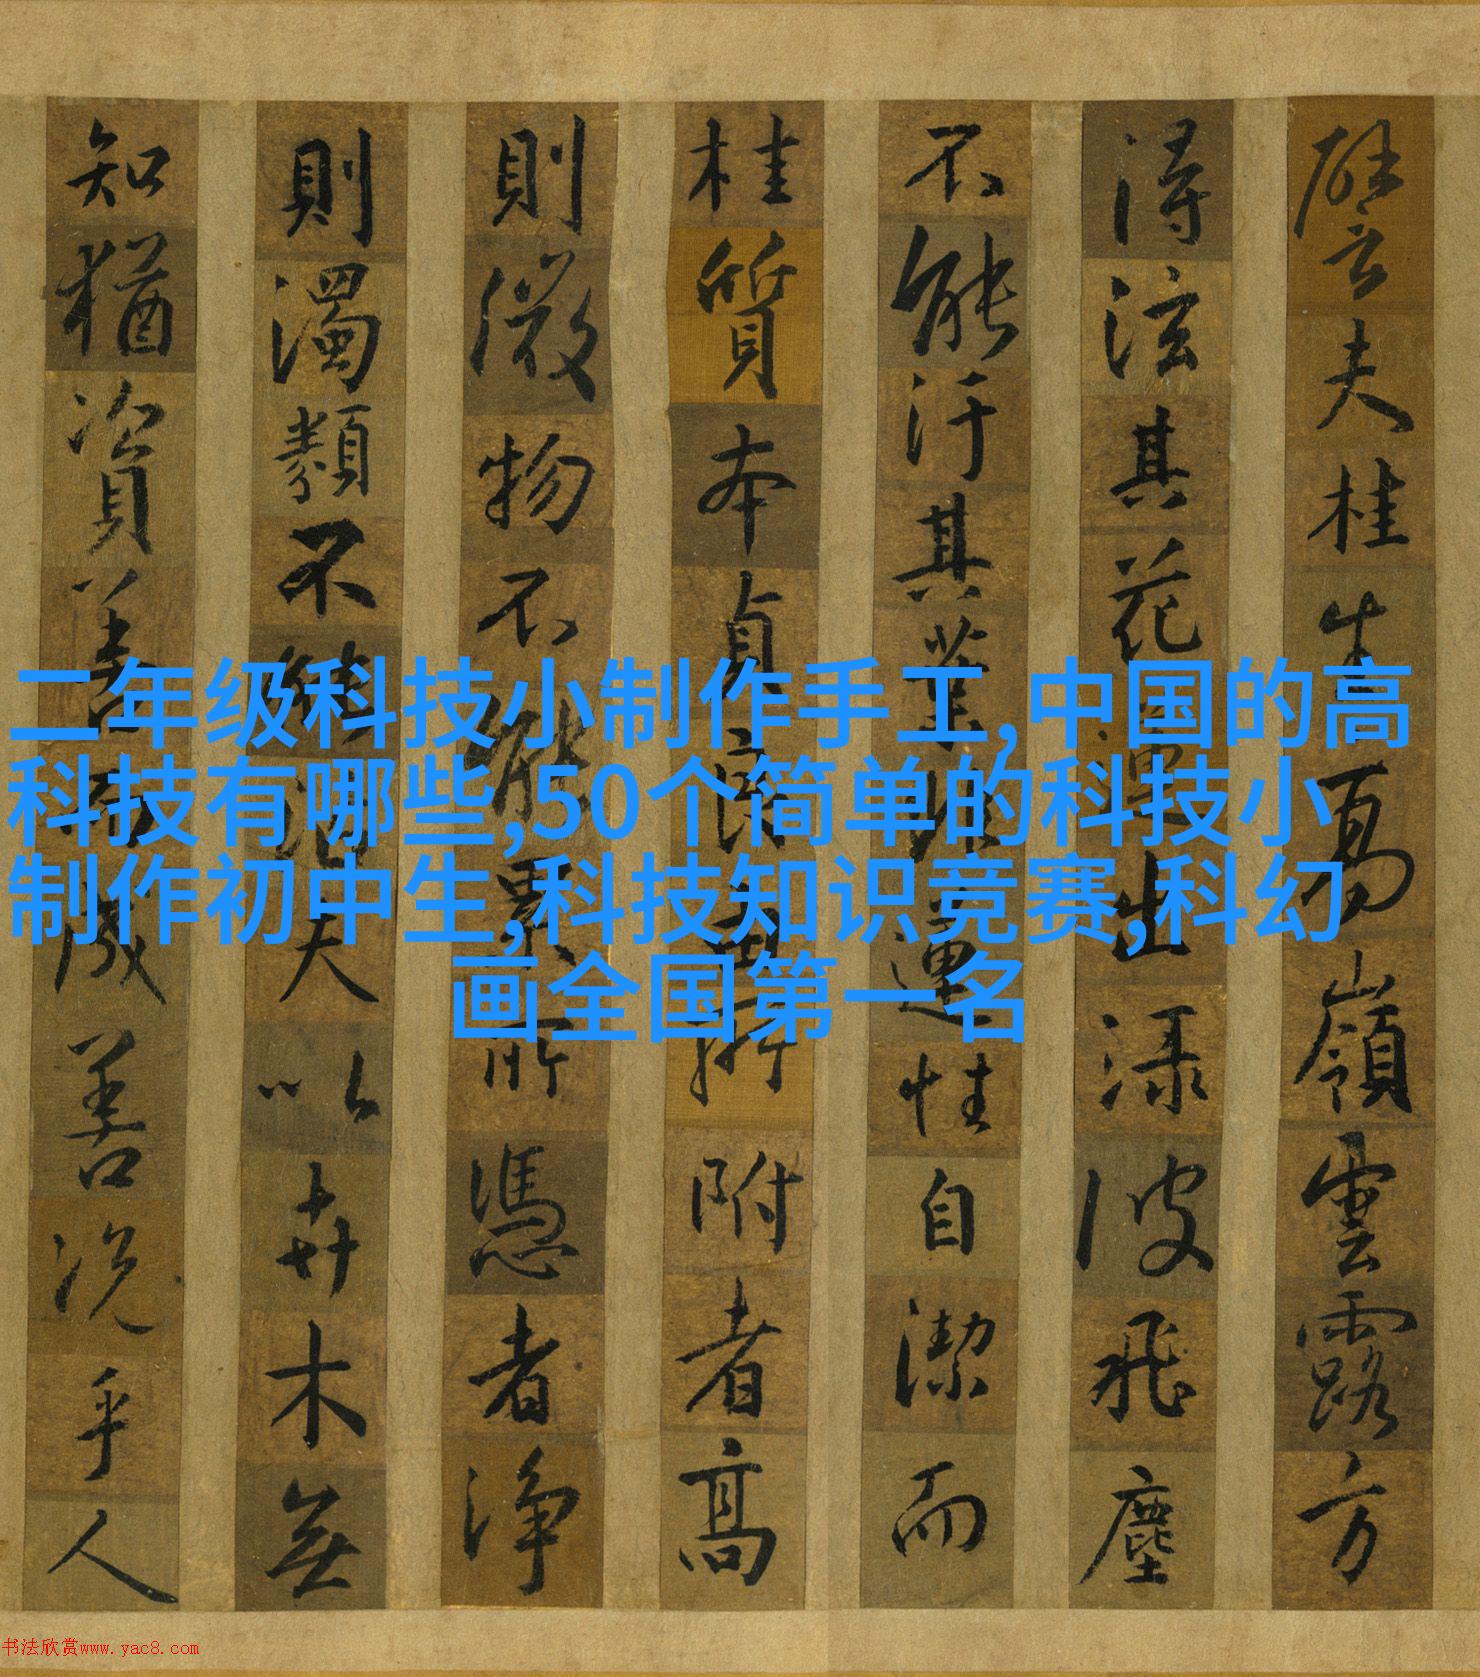 譬夫桂生高嶺雲露方
得泫其花蓮出淥波飛塵
不能汙其葉非蓮性自潔而
桂質本貞良由所附者高
則微物不能累所憑者淨
則濁類不能沾夫以卉木無
知猶資善而成善況乎人
二年级科技小制作手工,中国的高
科技有哪些,50个简单的科技小
制作初中生,科技知识竞赛,科幻
画全国第一名
书法欣赏www.yac8.com